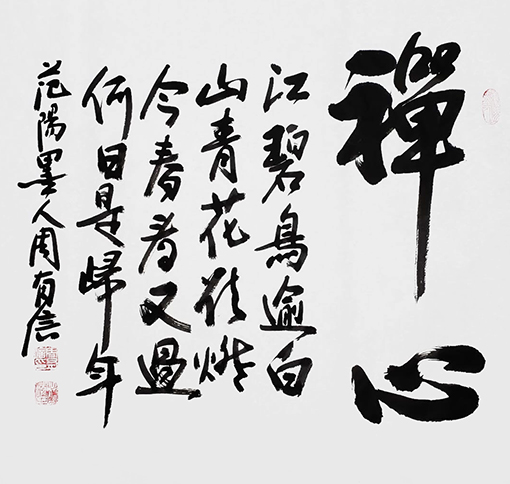 禪心
江碧鳥逾白
山青花欲燃
今春看又過
何日是歸年
范陽墨人周有信